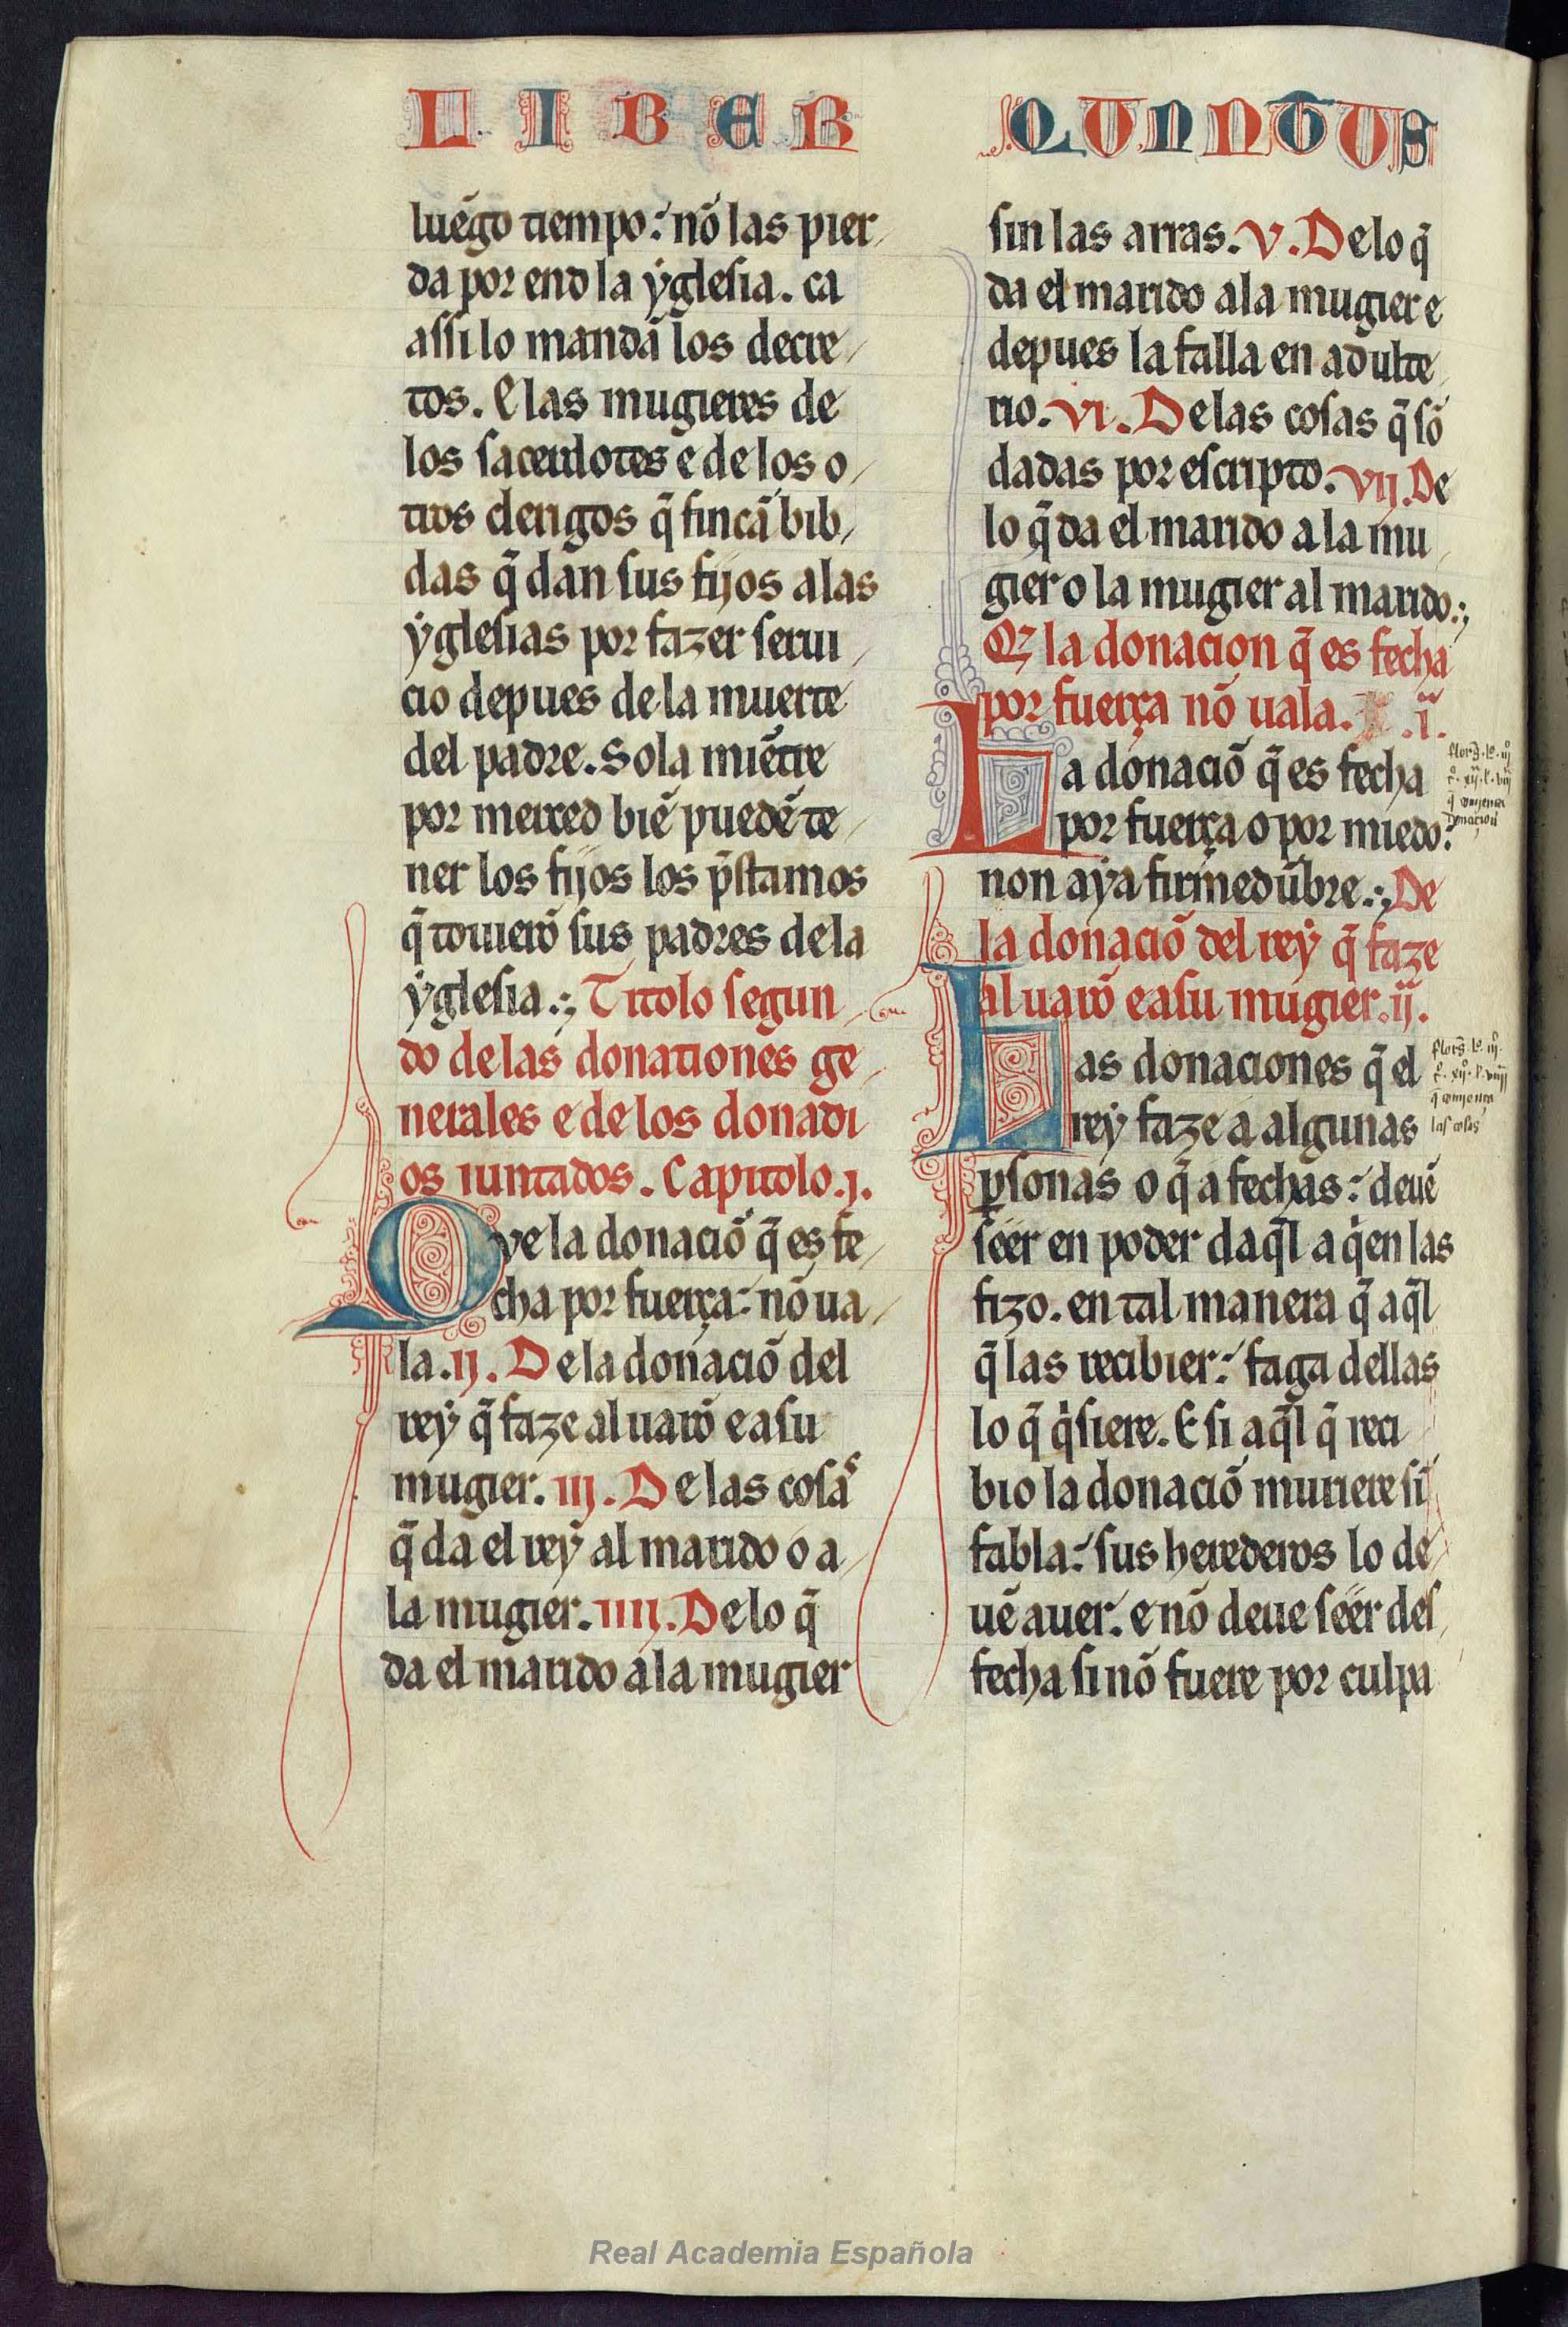 LIBER
luẽgo tiempo: nõ las pier
da por end la ẏglesia. ca
assi lo mandã los decre
tos. E las mugieres de
los sacerdotes e de los o
tros clerigos q̃ fincã bib
das q̃ dan sus fijos a las
ẏglesias por fazer serui
cio depues de la muerte
del padre. Sola miẽtre
por merced biẽ puedẽ te
ner los fijos los p̃stamos
q̃ touierõ sus padres de la
ẏglesia.; Titolo segun
do de las donationes ge
nerales e de los donadi
os iuntados. Capitolo .j.
Qve la donaciõ q̃ es fe
cha por fuerça: nõ ua
la .ij. De la donaciõ del
reẏ q̃ faze al uarõ e a su
mugier. iij. De las cosas
q̃ da el reẏ al marido o a
la mugier. iiij. De lo q̃
da el marido a la mugier
QUINNTUS
sin las arras. v. De lo q̃
da el marido a la mugier e
depues la falla en adulte
rio. vi. De las cosas q̃ sõ
dadas por escripto. vij. De
lo q̃ da el marido a la mu
gier o la mugier al marido.;
Q̃ la donacion q̃ es fecha
por fuerça nõ uala. .i.
La donaciõ q̃ es fecha
por fuerça o por miedo:
non aẏa firmedũbre.; De
la donaciõ del reẏ q̃ faze
al uarõ e a su mugier. ij.
Las donaciones q̃ el
rey faze a algunas
ꝑsonas o q̃ a fechas: deuẽ
seer en poder daq̃l a q̇en las
fizo. en tal manera q̃ aq̃l
q̃ las recibier: faga dellas
lo q̃ q̇siere. E si aq̃l q̃ reci
bio la donaciõ muriere sĩ
fabla: sus herederos lo de
uẽ auer. e nõ deue seer des
fecha si nõ fuere por culpa
donaçion
las cosas
Real Academia Española